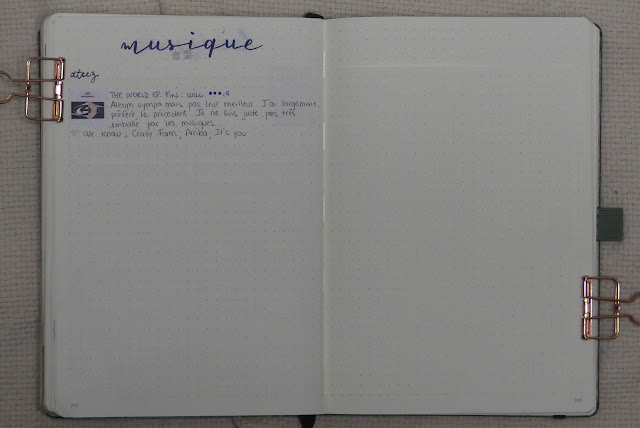 musique
ateez
THE WORLD EP. FIN : WILL •••,5
Album sympa mais pas leur meilleur. J'ai largement
préféré le précédent. Je ne suis juste pas très
emballée par les musiques.
♡ We Know, Crazy Form, Arriba, It's you